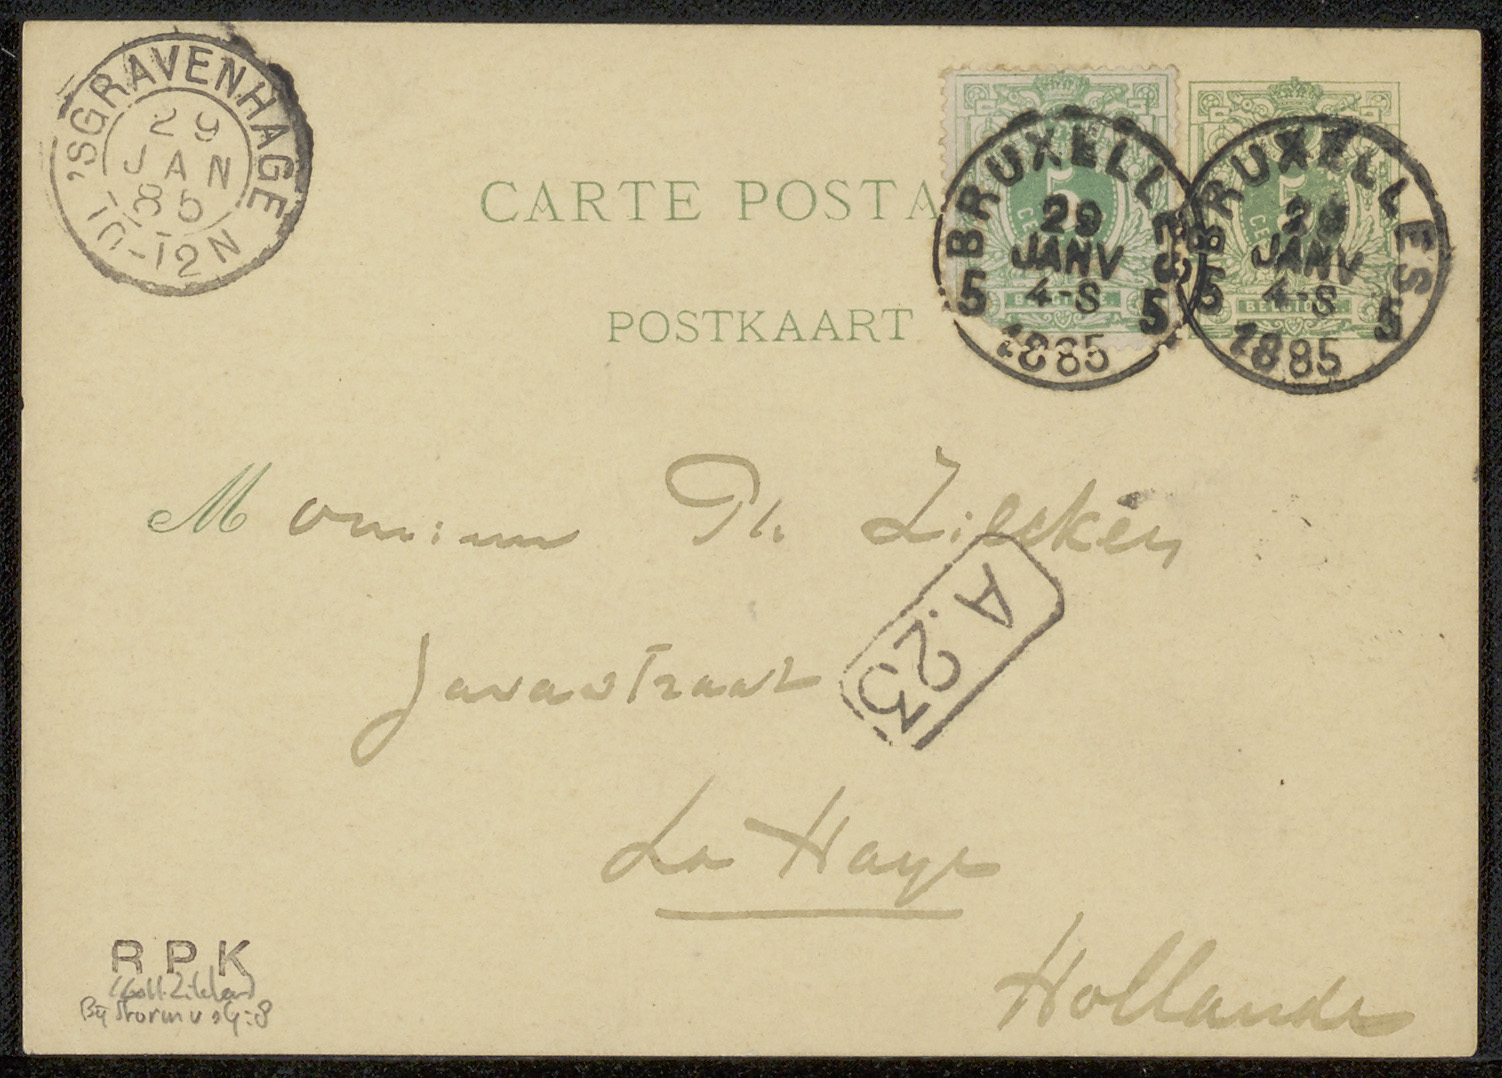 'SGRAVENHAGE
29
JAN
85
10-12N
5
CE
BELGIQUE
BRUXELLES
29
JANV
4-S
5 5
1885
5
CE
BELGIQUE
BRUXELLES
29
JANV
4-S
5 5
1885
CARTE POSTA
POSTKAART
Monsieur Ph Zilcken
A.23
Javastraat
La Haye
Hollande
RPK
(Coll. Zilcken)